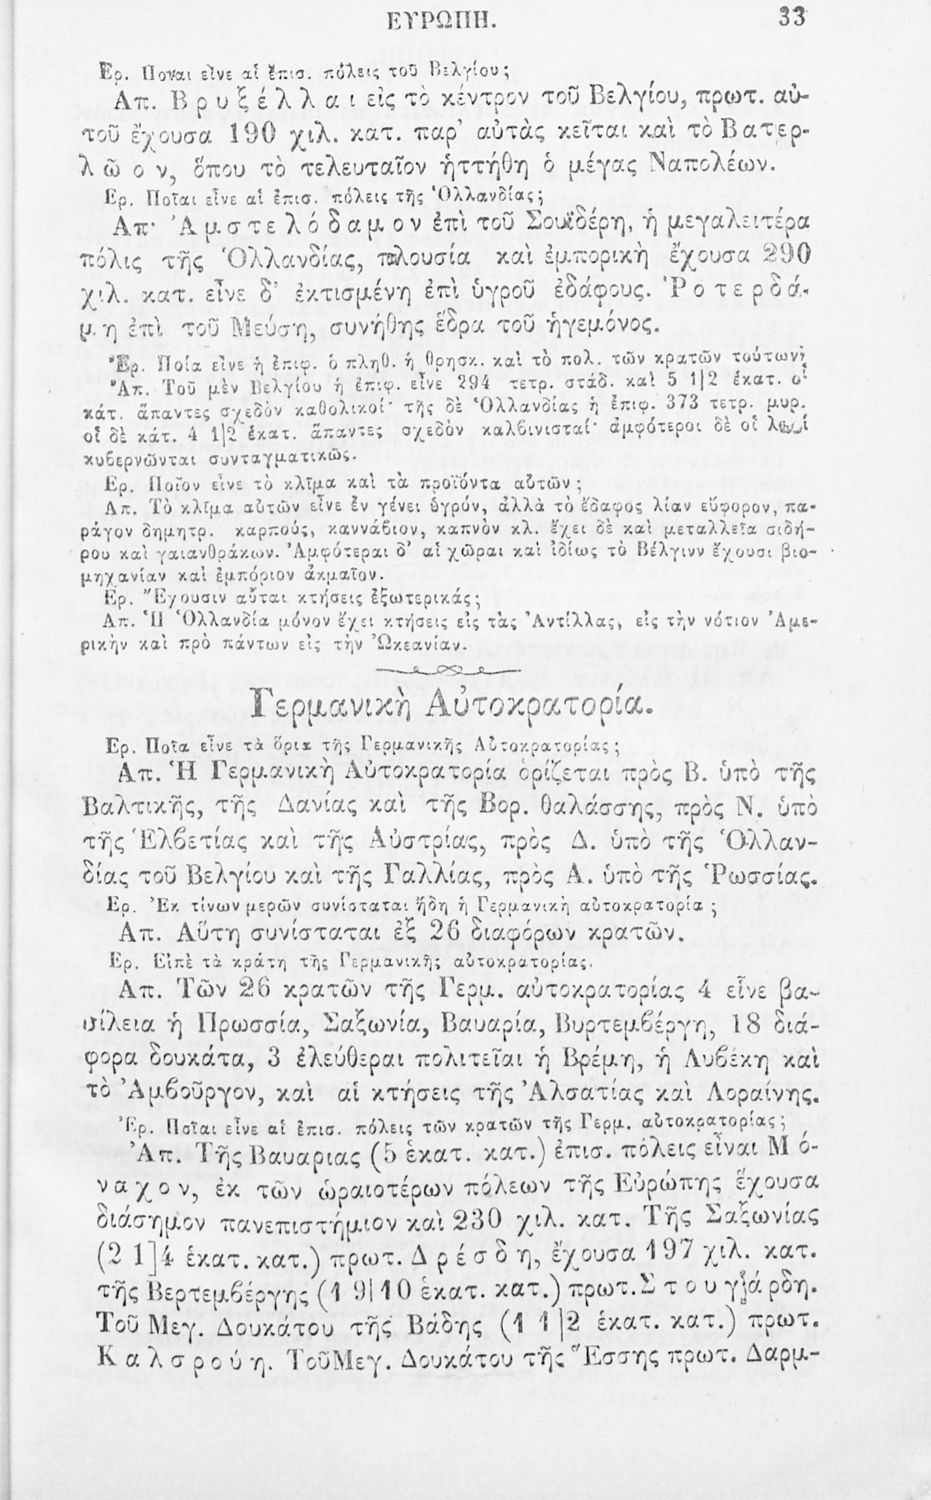 ΕΥΡΩΠΗ. 33
Ἐρ. Ποναι εἶνε αἱ ἔπισ. πόλεις τοῦ Βελγίου;
Ἀπ. Β ρ υ ξ έ λ λ α ι εἰς τὸ κέντρον τοῦ Βελγίου, πρωτ. αὐ-
τοῦ ἔχουσα 190 χιλ. κατ. παρ' αὐτὰς κεῖται καὶ τὸ Β α τ ε ρ-
λ ῶ ο ν, ὅπου τὸ τελευταῖον ἡττήθη ὁ μέγας Ναπολέων.
Ἐρ. Ποῖαι εἶνε αἱ ἐπισ. πόλεις τῆς Ὁλλανδίας;
Απ· Ἀ μ σ τ ε λ ό δ α μ ο ν ἐπὶ τοῦ Σουϊδέρη, ἡ μεγαλειτέρα
πόλις τῆς Ὁλλανδίας, πλουσία καὶ ἐμπορικὴ ἔχουσα 290
χιλ. κατ. εἶνε δ' ἐκτισμένη ἐπὶ ὑγροῦ ἐδάφους. Ῥ ο τ ε ρ δ ά-
μ η ἐπὶ τοῦ Μεύση, συνήθης ἕδρα τοῦ ἡγεμόνος.
Ἐρ. Ποία εἶνε ἡ ἐπιφ. ὁ πληθ. ἡ θρησκ. καὶ τὸ πολ. τῶν κρατῶν τούτων;
Ἀπ. Τοῦ μὲν Βελγίου ἡ ἐπιφ. εἶνε 294 τετρ. στάδ. καὶ 5 1|2 ἑκατ. οἱ
κάτ. ἅπαντες σχεδὸν καθολικοί· τῆς δὲ Ὁλλανδίας ἡ ἐπιφ. 373 τετρ. μυρ.
οἱ δὲ κάτ. 4 1|2 ἑκατ. ἅπαντες σχεδὸν καλβινισταί· ἀμφότεροι δὲ οἱ λαοὶ
κυβερνῶνται συνταγματικῶς.
Ἐρ. Ποῖον εἶνε τὸ κλῖμα καὶ τὰ προϊόντα αὐτῶν;
Απ. Τὸ κλῖμα αὐτῶν εἶνε ἐν γένει ὑγρόν, ἀλλὰ τὸ ἔδαφος λίαν εὔφορον, πα-
ράγον δημητρ. καρπούς, καννάβιον, καπνὸν κλ. ἔχει δὲ καὶ μεταλλεῖα σιδή-
ρου καὶ γαιανθράκων. Ἀμφότεραι δ' αἱ χῶραι καὶ ἰδίως τὸ Βέλγινν ἔχουσι βιο-
μηχανίαν καὶ ἐμπόριον ἀκμαῖον.
Ἐρ. Ἔχουσιν αὗται κτήσεις ἐξωτερικάς;
Απ. Ἡ Ὁλλανδία μόνον ἔχει κτήσεις εἰς τὰς Ἀντίλλας, εἰς τὴν νότιον Ἀμε-
ρικὴν καὶ πρὸ πάντων εἰς τὴν Ὠκεανίαν.
Γερμανικὴ Αὐτοκρατορία.
Ἐρ. Ποῖα εἶνε τὰ ὅρια τῆς Γερμανικῆς Αὐτοκρατορίας;
Ἀπ. Ἡ Γερμανικὴ Αὐτοκρατορία ὁρίζεται πρὸς Β. ὑπὸ τῆς
Βαλτικῆς, τῆς Δανίας καὶ τῆς Βορ. θαλάσσης, πρὸς Ν. ὑπὸ
τῆς Ἑλβετίας καὶ τῆς Αὐστρίας, πρὸς Δ. ὑπὸ τῆς Ὁλλαν-
δίας τοῦ Βελγίου καὶ τῆς Γαλλίας, πρὸς Α. ὑπὸ τῆς Ῥωσσίας.
Ἐρ. Ἐκ τίνων μερῶν συνίσταται ἤδη ἡ Γερμανικὴ αὐτοκρατορία ;
Απ. Αὕτη συνίσταται ἐξ 26 διαφόρων κρατῶν.
Ἐρ. Εἰπὲ τὰ κράτη τῆς Γερμανικῆς αὐτοκρατορίας.
Ἀπ. Τῶν 26 κρατῶν τῆς Γερμ. αὐτοκρατορίας 4 εἶνε βα-
σίλεια ἡ Πρωσσία, Σαξωνία, Βαυαρία, Βυρτεμβέργη, 18 διά-
φορα δουκάτα, 3 ἐλεύθεραι πολιτεῖαι ἡ Βρέμη, ἡ Λυβέκη καὶ
τὸ Ἀμβοῦργον, καὶ αἱ κτήσεις τῆς Ἀλσατίας καὶ Λοραίνης.
Ἐρ. Ποῖαι εἶνε αἱ ἐπισ. πόλεις τῶν κρατῶν τῆς Γερμ. αὐτοκρατορίας;
Ἀπ. Τῆς Βαυαριας (5 ἑκατ. κατ.) ἐπισ. πόλεις εἶναι Μ ό-
ν α χ ο ν, ἐκ τῶν ὡραιοτέρων πόλεων τῆς Εὐρώπης ἔχουσα
διάσημον πανεπιστήμιον καὶ 230 χιλ. κατ. Τῆς Σαξωνίας
(2 1]4 ἑκατ. κατ.) πρωτ. Δ ρ έ σ δ η, ἔχουσα 197 χιλ. κατ.
τῆς Βερτεμβέργης (1 9|10 ἑκατ. κατ.) πρωτ. Σ τ ο υ γ ά ρ δη.
Τοῦ Μεγ. Δουκάτου τῆς Βάδης (1 1|2 ἑκατ. κατ.) πρωτ.
Κ α λ σ ρ ο ύ η. Τοῦ Μεγ. Δουκάτου τῆς Ἔσσης πρωτ. Δαρμ-